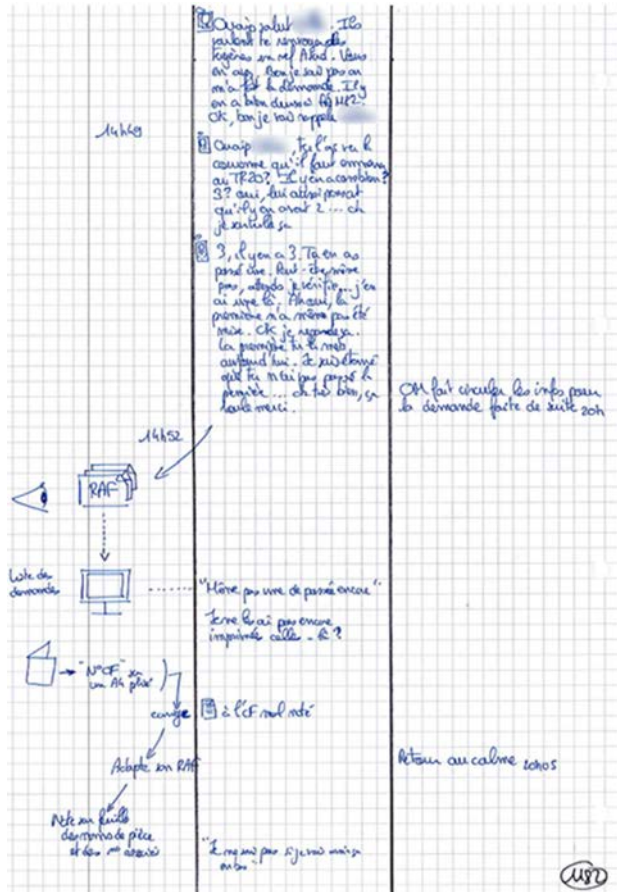 Ouaip salut. Ils
veulent te
en ref. Vous
en avez. Bon je sais pas on
m'a fait la demande. Il y
en a bien
OK, bon je vais rappeler
14h49
Ouaip, tu l'as vu la
couronne qu'il faut
au TR20? Il y en a combien?
3? oui, lui aussi pensait
qu'il y en avait 2 ... ok
je
3, il y en a 3. Ta en as
passé une. Peut-être même
pas, attends je vérifie... j'en
ai une là. Ah oui, la
première n'a même pas été
mise. OK je regarde ça.
La première tu la mets
aujourd'hui. Je suis étonné
que tu n'ai pas passé la
première ... ok très bien, ça
roule merci.
OM fait circuler les infos pour
la demande faite de suite 20h
14h52
RAF
Liste des
demandes
"Même pas une de passée encore"
Je ne l'ai pas encore
imprimée celle-là?
"N°CF" sur
un A4 plié
corrige
à l'CF mal noté
Adapte son RAF
Retour au calme 20h05
Note sur feuille
des noms de pièce
et des associés
"Je ne sais pas si je vais
1182